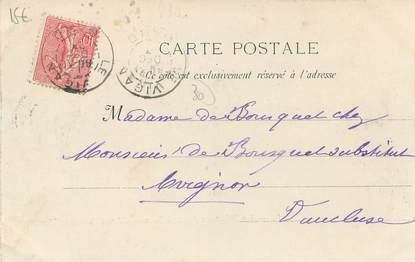 15€
CARTE POSTALE
Ce côté est exclusivement réservé à l'adresse
30
Madame de Bousquet chez
Monsieur de Bousquet substitut
Avignon
Vaucluse
LE VIGAN